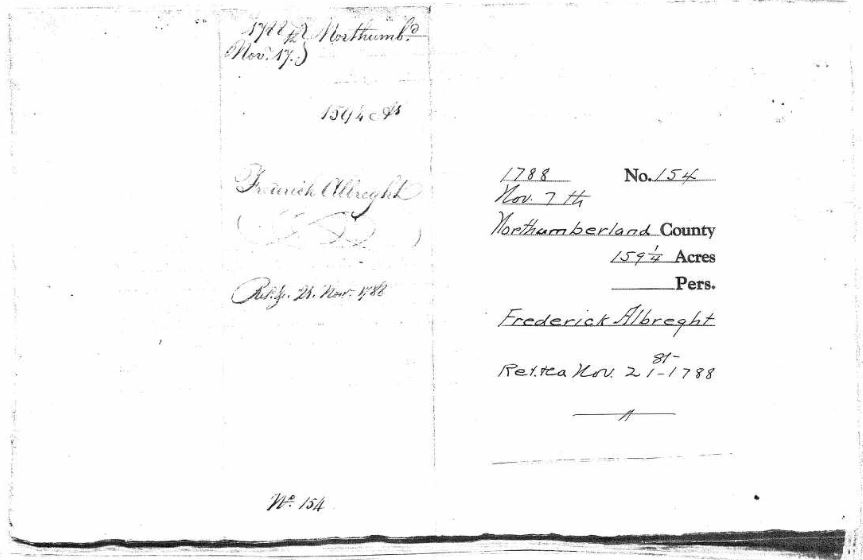 1788 Northumb.d
Nov. 7.
159¼ cs
Frederich Albreght
Ret.g. 21. Nov. 1788
No. 154
1788 No. 154
Nov. 7th
Northumberland County
159¼ Acres
Pers.
Frederick Albreght
Ret.ted Nov. 21st-1788